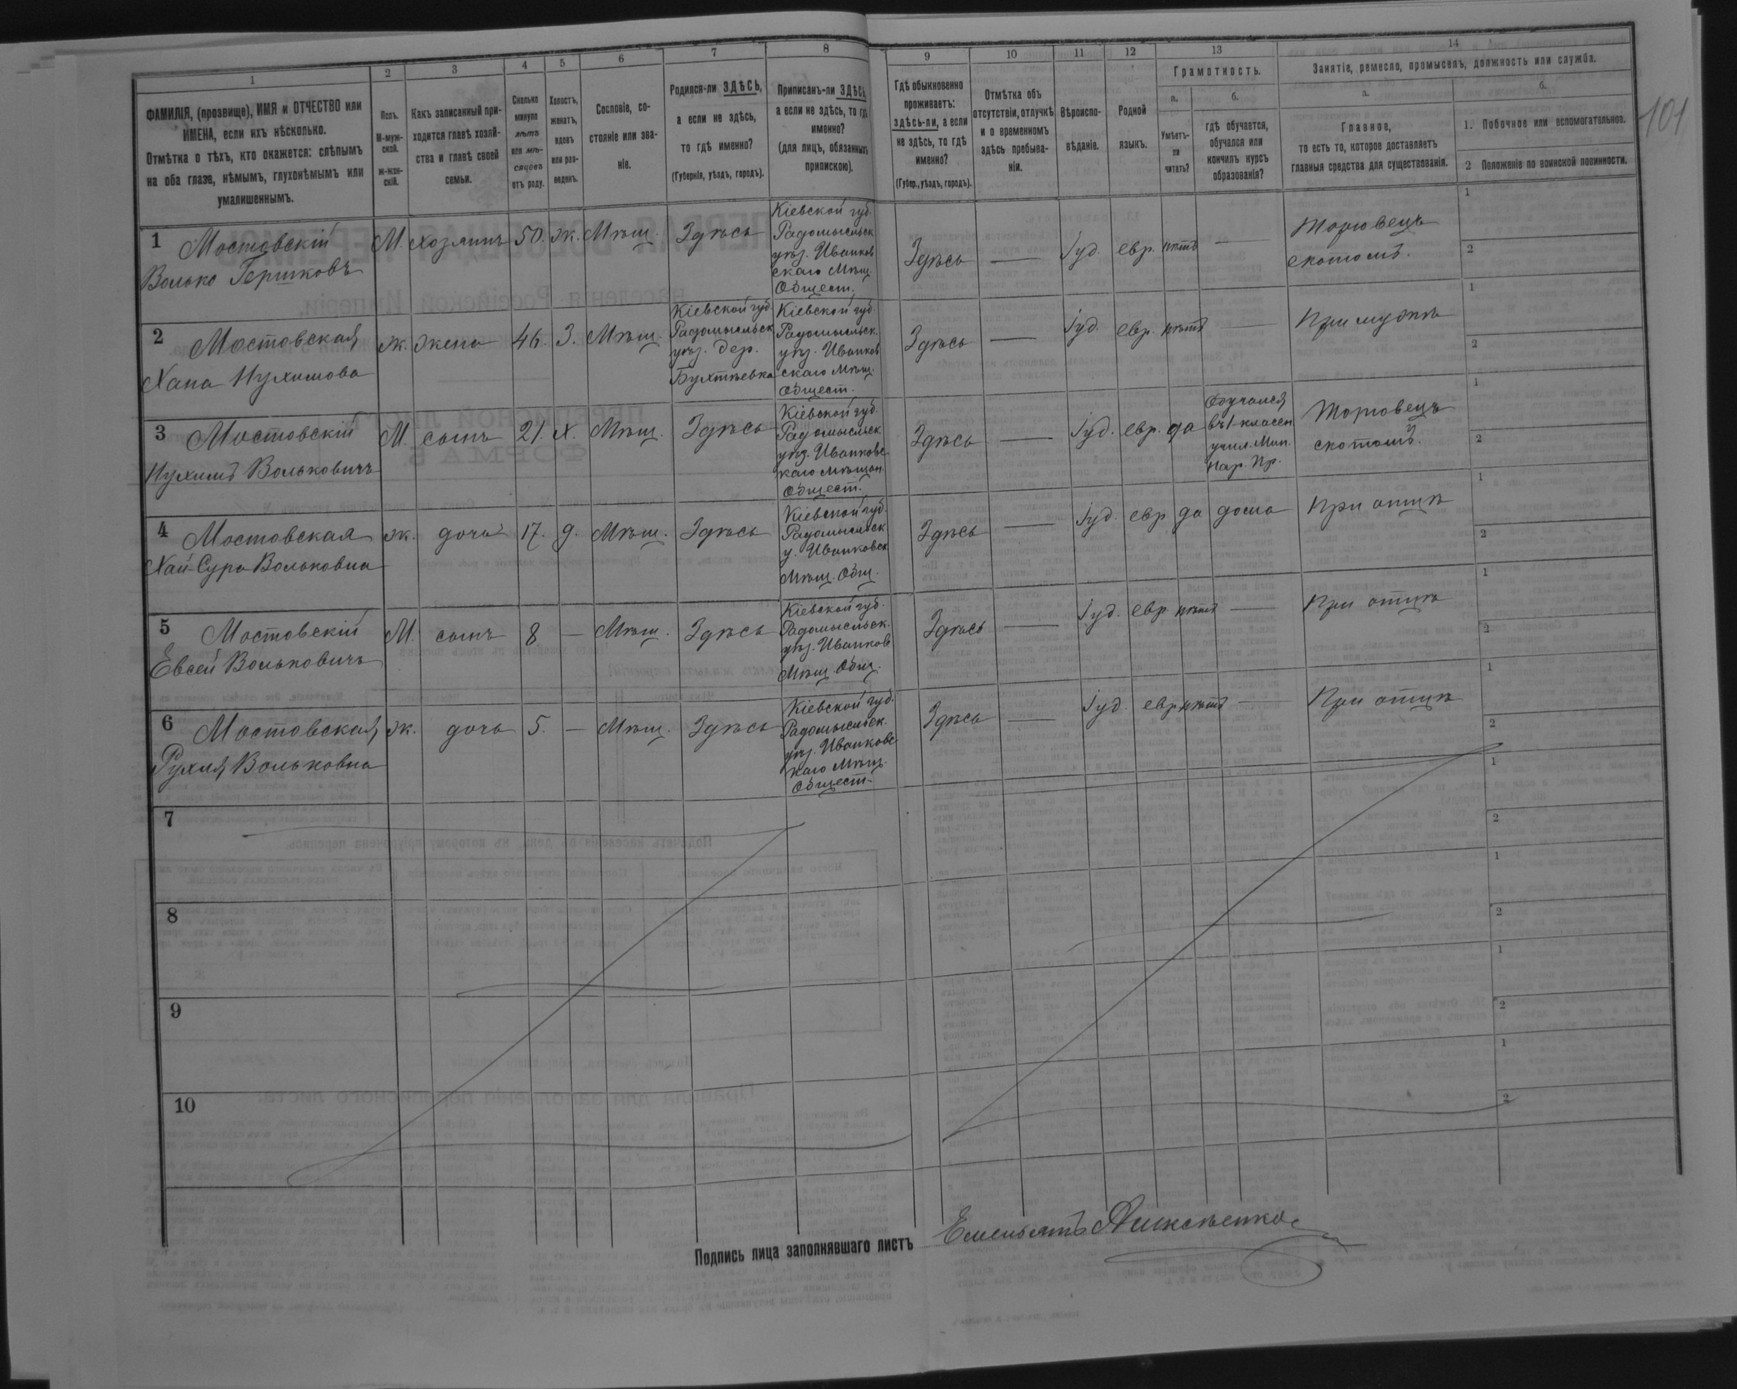 101
1 2 3 4 5 6 7 8 9 10 11 12 13 14
ФАМИЛІЯ, (прозвище), ИМЯ и ОТЧЕСТВО или
ИМЕНА, если ихъ нѣсколько.
Отмѣтка о тѣхъ, кто окажется: слѣпымъ
на оба глаза, нѣмымъ, глухонѣмымъ или
умалишеннымъ.
Полъ.
М-муж-
ской.
ж-жен-
скій.
Какъ записанный при-
ходится главѣ хозяй-
ства и главѣ своей
семьи.
Сколько
минуло
лѣтъ
или мѣ-
сяцевъ
отъ роду.
Холостъ,
женатъ,
вдовъ
или раз-
веденъ.
Сословіе, со-
стояніе или зва-
ніе.
Родился-ли ЗДѢСЬ,
а если не здѣсь,
то гдѣ именно?
(Губернія, уѣздъ, городъ).
Приписанъ-ли ЗДѢСЬ,
а если не здѣсь, то гдѣ
именно?
(для лицъ, обязанныхъ
припискою).
Гдѣ обыкновенно
проживаетъ:
здѣсь-ли, а если
не здѣсь, то гдѣ
именно?
(Губер., уѣздъ, городъ).
Отмѣтка объ
отсутствіи, отлучкѣ
и о временномъ
здѣсь пребыва-
ніи.
Вѣроиспо-
вѣданіе.
Родной
языкъ.
Грамотность.
а.
Умѣетъ-
ли
читать?
б.
гдѣ обучается,
обучался или
кончилъ курсъ
образованія?
Занятіе, ремесло, промыселъ, должность или служба.
а.
Главное,
то есть то, которое доставляетъ
главныя средства для существованія.
б.
1. Побочное или вспомогательное.
2 Положеніе по воинской повинности.
1 Мостовскій
Волько Гершковъ
М. хозяинъ 50. ж. Мѣщ. Здѣсь
Кіевской губ.
Радомысльск
уѣз. Иванков
скаго Мѣщ.
Общест.
Здѣсь — Іуд. евр. нѣтъ —
Торговецъ
скотомъ.
1
2
2 Мостовская
Хана Нухимова
ж. жена 46. З. Мѣщ.
Кіевской губ
Радомысльск
уѣз. дер.
Бухтѣевка
Кіевской губ
Радомысльск.
уѣз. Иванков
скаго мѣщ.
Общест.
Здѣсь — Іуд. евр. нѣтъ — При мужѣ
1
2
3 Мостовскій
Нухимъ Вольковичъ
М. сынъ 21. Х. Мѣщ. Здѣсь
Кіевской губ.
Радомысльск
уѣз. Иванковс
каго мѣщан.
Общест.
Здѣсь — Іуд. евр. да
Обучался
въ 1 классн
учил. Мин.
Нар. Пр.
Торговецъ
скотомъ.
1
2
4 Мостовская
Хай-Сура Вольковна
ж. дочь 17. д. Мѣщ. Здѣсь
Кіевской губ.
Радомысльск
у. Иванковск
Мѣщ. Общ.
Здѣсь — Іуд. евр да дома При отцѣ
1
2
5 Мостовскій
Евсей Вольковичъ
М. сынъ 8 — Мѣщ. Здѣсь
Кіевской губ.
Радомысльск.
уѣз. Иванков
Мѣщ. Общ.
Здѣсь — Іуд. евр нѣтъ — При отцѣ
1
2
6 Мостовская
Рухля Вольковна
ж. дочь 5. — Мѣщ. Здѣсь
Кіевской губ.
Радомысльск.
уѣз. Иванковс
каго Мѣщ.
Общест.
Здѣсь — Іуд. евр нѣтъ — При отцѣ
1
2
7
1
2
8
1
2
9
1
2
10
1
2
Подпись лица заполнявшаго листъ